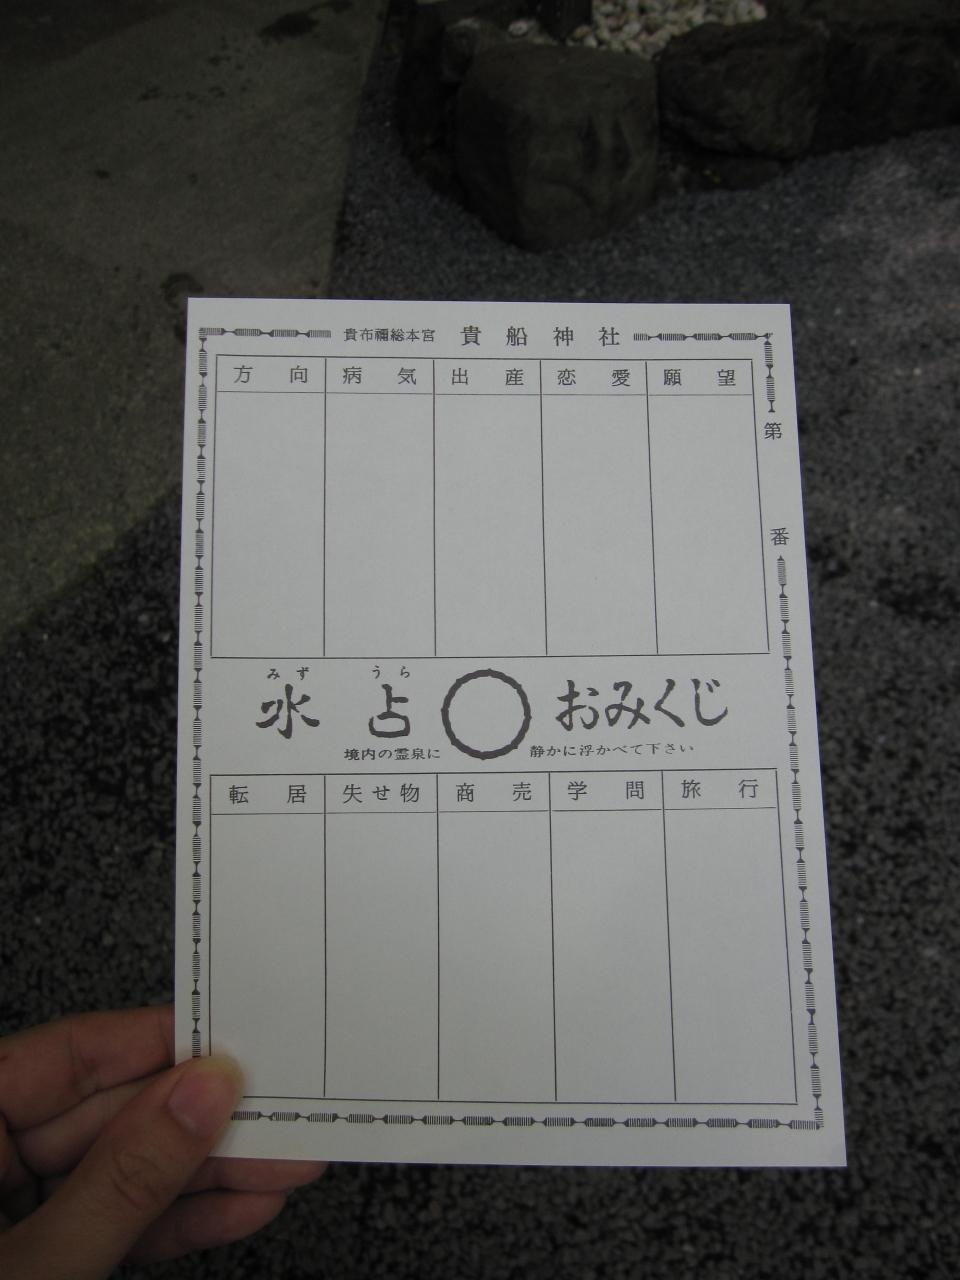 貴布禰総本宮 貴船神社
第 番
願望 恋愛 出産 病気 方向
みず うら
水占 おみくじ
境内の霊泉に 静かに浮かべて下さい
旅行 学問 商売 失せ物 転居